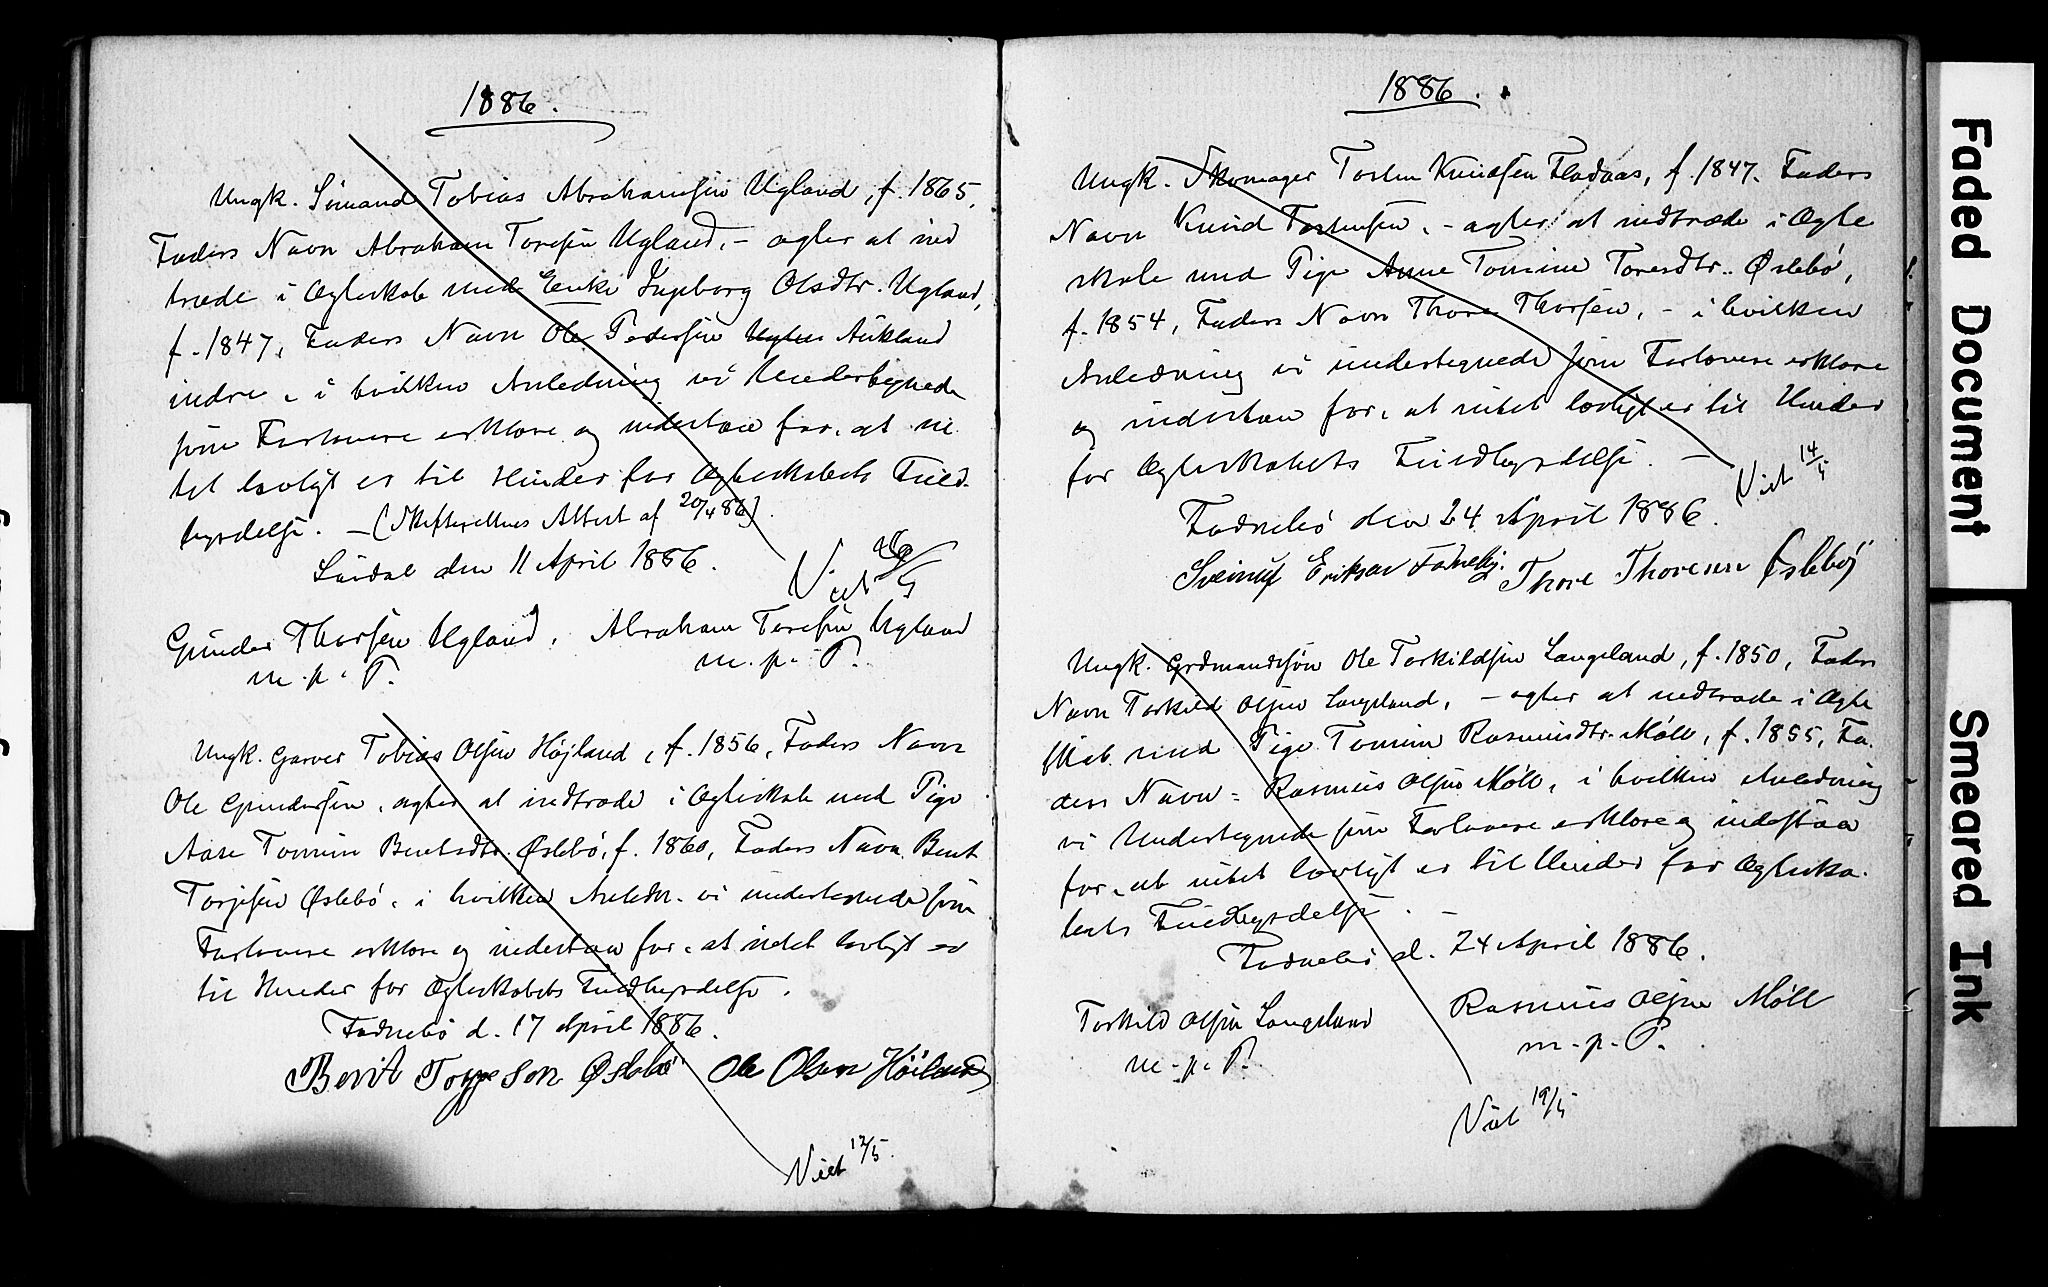 1886.
Ungk. Sömand Tobias Abrahamsen Ugland, f. 1865,
Faders Navn Abraham Toresen Ugland, - agter at ind
træde i Ægteskab med Enke Ingeborg Olsdtr. Ugland,
f. 1847, Faders Navn Ole Pedersen Aukland
indre, i hvilken Anledning vi Undertegnede
som Forlovere erklære og indestaa for, at in
tet lovligt er til Hinder for Ægteskabets Fuld
byrdelse. - (Skifterettens Attest af 20/4 86).
den 11 April 1886.
Viet 26/5
Gunder Thorsen Ugland, Abraham Toresen Ugland
m. p. P. m. p. P.
Ungk. Garver Tobias Olsen Højland, f. 1856, Faders Navn
Ole Gundersen, agter at indtræde i Ægteskab med Pige
Aase Tomine Bentsdtr. Øslebö, f. 1860, Faders Navn Bent
Torjesen Øslebö, i hvilken Anledn. vi undertegnede som
Forlovere erklære og indestaa for, at intet lovligt er
til Hinder for Ægteskabets Fuldbyrdelse.
Fadnebö d. 17 April 1886.
Berit Torjeson Øslebö Ole Olsen Höiland
Viet 12/5.
1886.
Ungk. Skomager Tosten Knudsen Fladaas, f. 1847. Faders
Navn Knud Tostensen, - agter at indtræde i Ægte
skab med Pige Anne Tomine Toresdtr. Øslebö,
f. 1854, Faders Navn Thore Thorsen, - i hvilken
Anledning vi undertegnede som Forlovere erklære
og indestaa for, at intet lovligt er til Hinder
for Ægteskabets Fuldbyrdelse. -
Viet 14/5
Fadnebö den 24 April 1886.
Eriksen Thore Thoresen Øslebö
Ungk. Grdmandssön Ole Torkildsen Langeland, f. 1850, Faders
Navn Torkild Olsen Langeland, - agter at indtræde i Ægte
skab med Pige Tomine Rasmusdtr. Möll, f. 1855, Fa-
ders Navn = Rasmus Olsen Möll, i hvilken Anledning
vi Undertegnede som Forlovere erklære og indestaa
for, at intet lovligt er til Hinder for Ægteska-
bets Fuldbyrdelse. -
Fadnebö d. 24 April 1886.
Torkild Olsen Langeland Rasmus Olsen Möll
m. p. P. m. p. P.
Viet 19/5
Faded Document
Smeared Ink